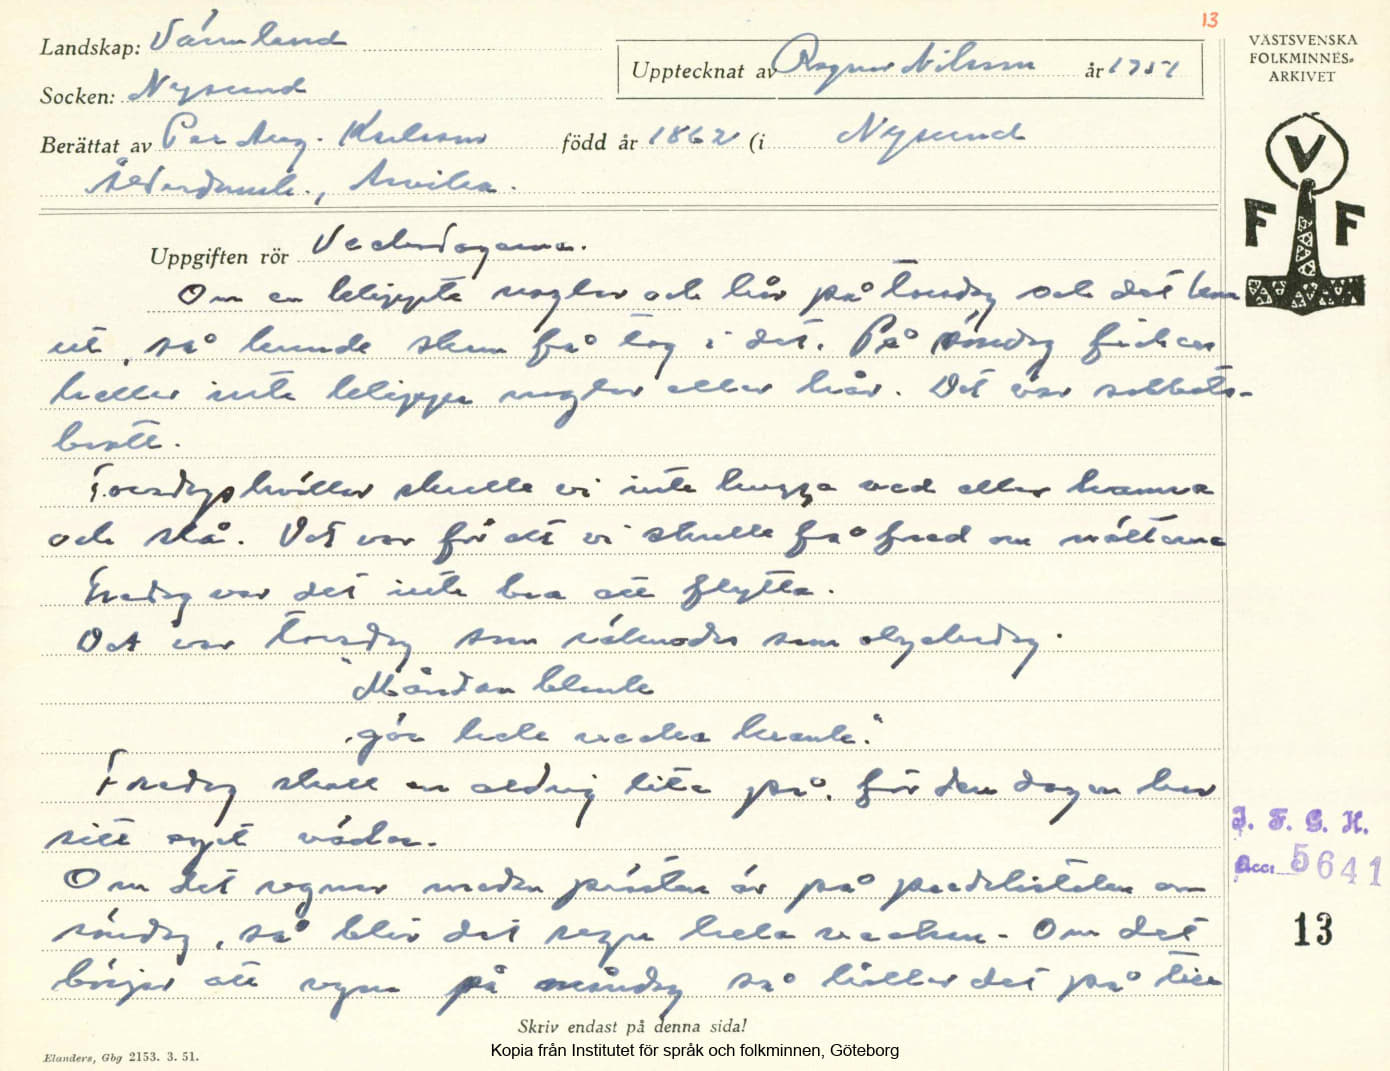 13
Landskap: Värmland
Socken: Nysund
Berättat av Per Aug. Karlsson född år 1862 (i Nysund
Ålderdomsh., Arvika.
Upptecknat av Ragnar Nilsson år 1951
VÄSTSVENSKA
FOLKMINNES-
ARKIVET
V
F F
Uppgiften rör Veckodagarna.
Om en klippte naglar och hår på torsdag och det kom
ut, så kunde skam få tag i det. På söndag fick en
heller inte klippa naglar eller hår. Det var sabbats-
brott.
Torsdagskvällar skulle vi inte hugga ved eller hamra
och slå. Det var för att vi skulle få fred om nätterna
Fredag var det inte bra att flytta.
Det var torsdag som räknades som olycksdag.
"Måndan blank
gör hela vecka krank."
Fredag skall en aldrig lita på, för den dagen har
sitt eget väder.
Om det regnar medan prästen är på predikstolen om
söndag, så blir det regn hela veckan. Om det
börjar att regna på måndag så håller det på till
Skriv endast på denna sida!
Elanders, Gbg 2153. 3. 51.
I. F. G. H.
Acc. 5641
13
Kopia från Institutet för språk och folkminnen, Göteborg